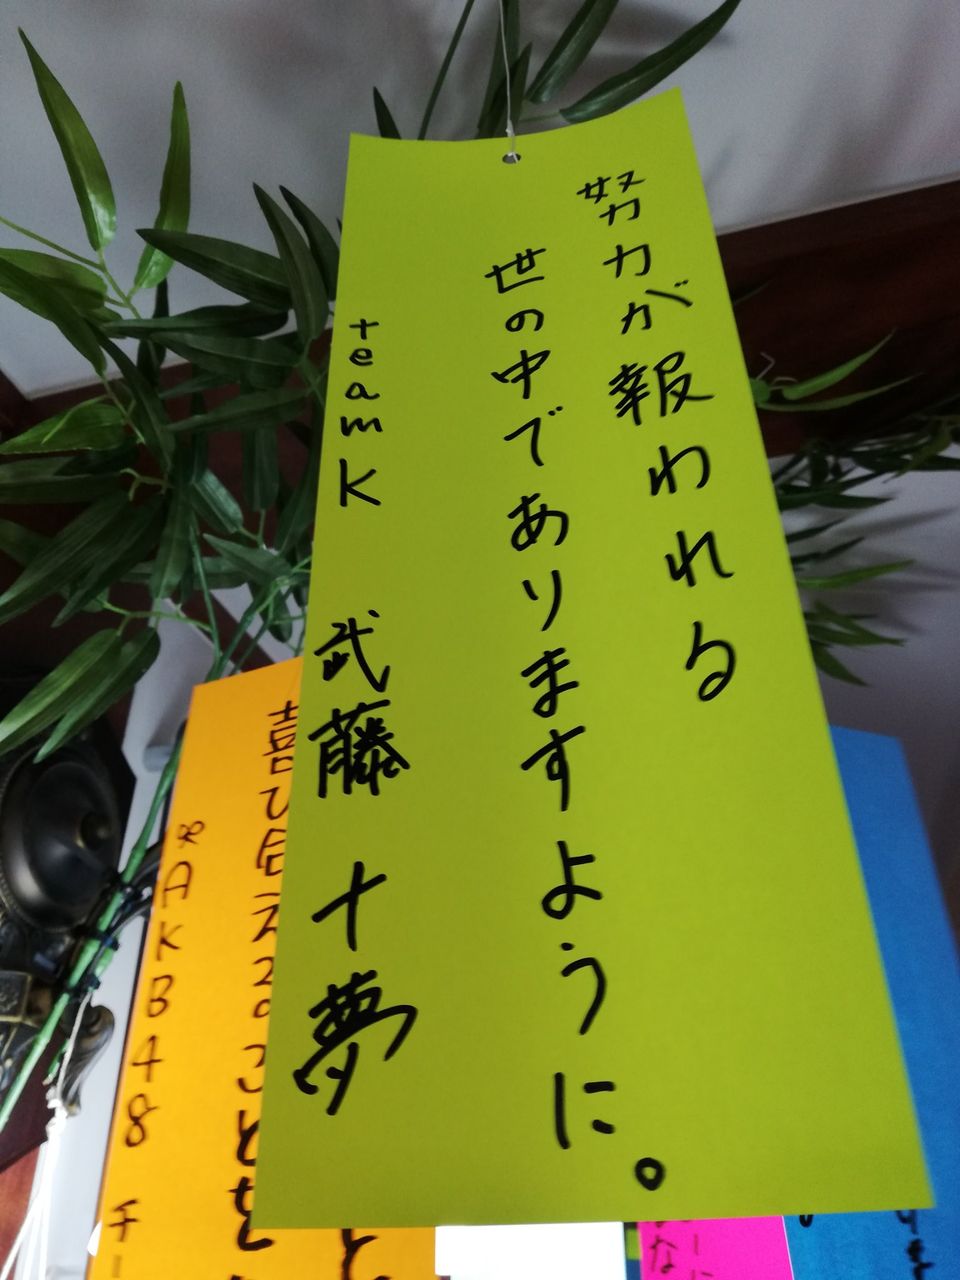 努力が報われる
世の中でありますように。
teamK 武藤 十夢
喜び合える
こと
AKB48 チー